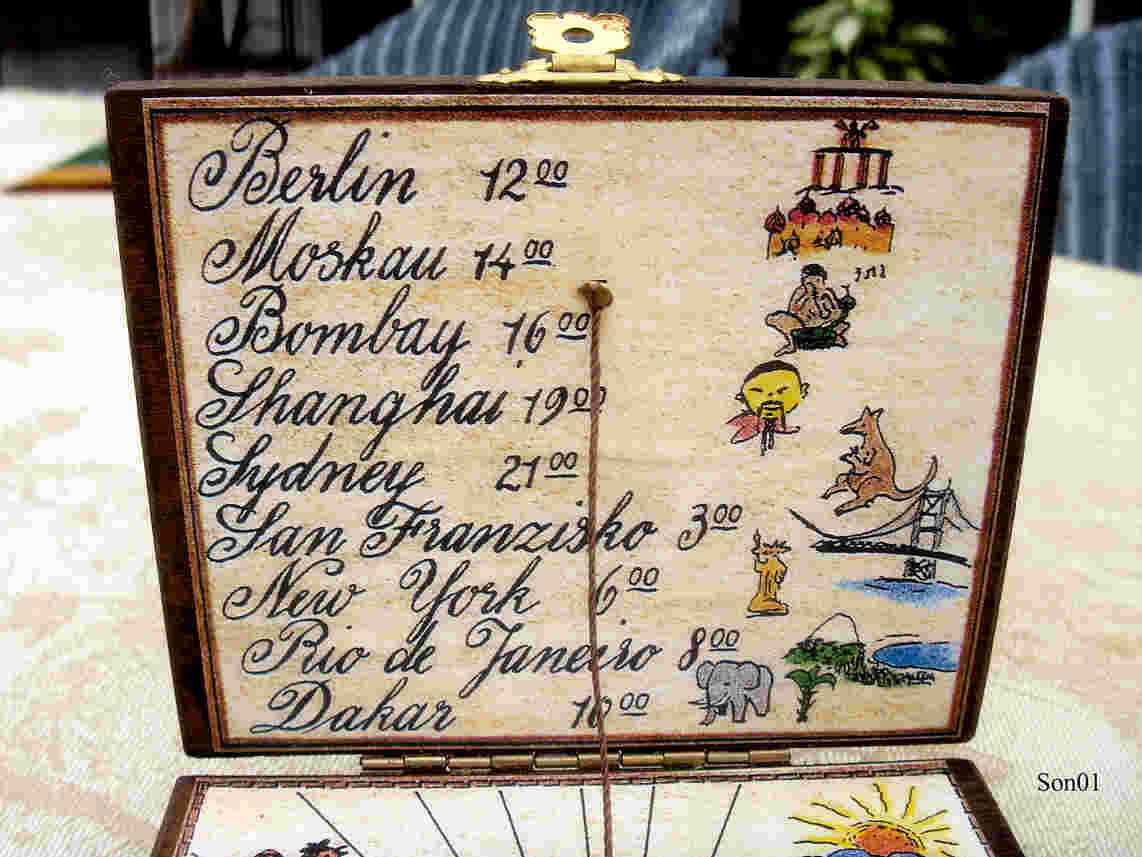 Berlin 12⁰⁰
Moskau 14⁰⁰
Bombay 16⁰⁰
Shanghai 19⁰⁰
Sydney 21⁰⁰
San Franzisko 3⁰⁰
New York 6⁰⁰
Rio de Janeiro 8⁰⁰
Dakar 10⁰⁰
Son01